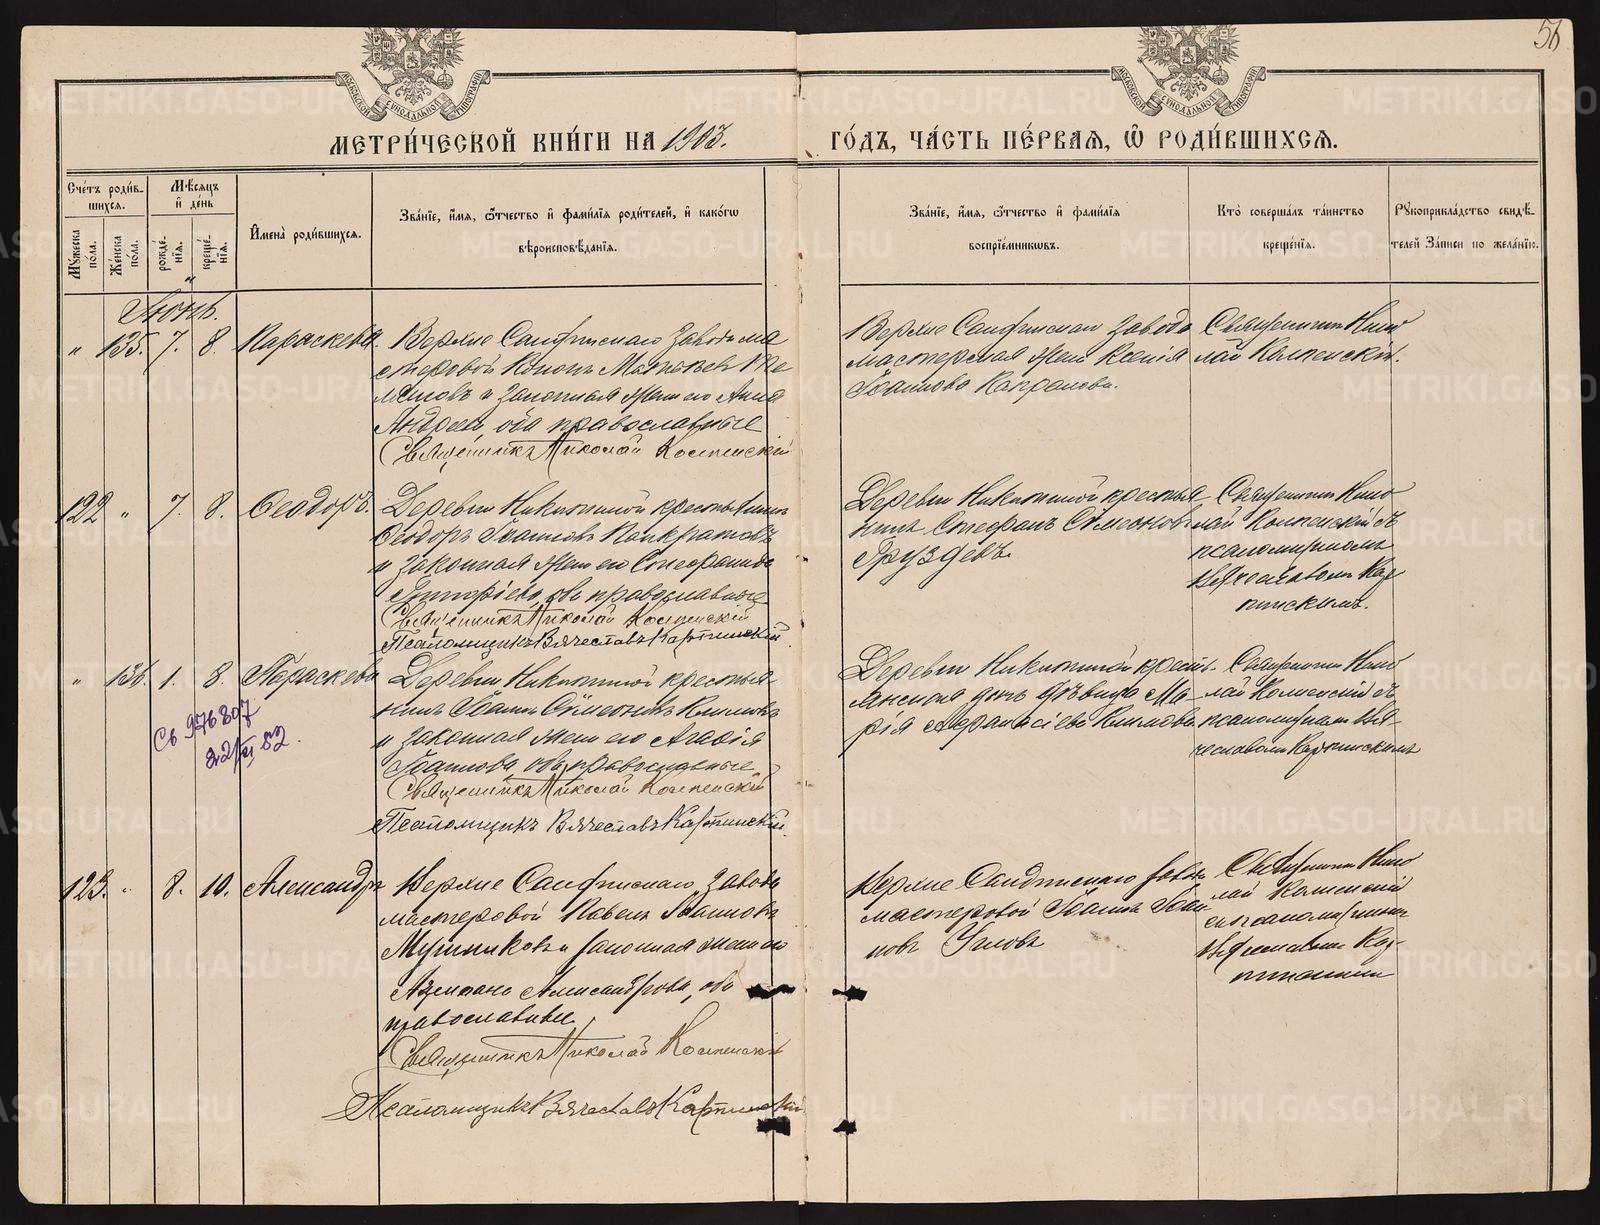 56
МОСКОВСКОЙ СѴНОДАЛЬНОЙ ТИПОГРАФІИ
МОСКОВСКОЙ СѴНОДАЛЬНОЙ ТИПОГРАФІИ
МЕТРИ́ЧЕСКОЙ КНИ́ГИ НА 1903. ГО́ДЪ, ЧА́СТЬ ПЕ́РВАЯ, Ѡ РОДИ́ВШИХСЯ.
Сче́тъ роди́в-
шихся.
Мѣ́сяцъ
и́ де́нь
Му́жеска
по́ла.
Же́нска
по́ла.
рожде́-
нїя.
креще́-
нїя.
И́мена̀ роди́вшихся.
Зва́нїе, и́мя, ѻ́тчество и́ фами́лїя роди́телей, и́ како́гѡ
вѣроисповѣ́данїя.
Зва́нїе, и́мя, ѻ́тчество и́ фами́лїя
воспрїе́мникѡвъ.
Кто̀ соверша́лъ та́инство
креще́нїя.
Рꙋкоприкла́дство свидѣ́-
телей За́писи по жела́нїю.
Іюнь.
" 135. 7. 8. Параскева.
Верхне Салдинскаго Завода ма
стеровой Кононъ Матѳеевъ
и законная жена его Анна
Андреева оба православные
Священникъ Николай
Верхне Салдинскаго Завода
мастерская жена Ксенія
Іоаннова
Священникъ Нико
лай
122 " 7. 8. Ѳеодоръ.
Деревни Никитиной крестьянинъ
Ѳеодоръ Іоанновъ Панкратовъ
и законная жена его Стефанида
оба православные
Священникъ Николай
Псаломщикъ Вячеславъ Карпинскій
Деревни Никитиной крестья
нинъ Стефанъ Сѵмеоновъ
Груздевъ
Священникъ Нико
лай съ
псаломщикомъ
Вячеславомъ Кар
пинскимъ.
" 136. 1. 8. Параскева
Св 976807
82
Деревни Никитиной крестья
нинъ Іоаннъ Сѵмеоновъ Климовъ
и законная жена его Агаѳія
Іоаннова, оба православные
Священникъ Николай
Псаломщикъ Вячеславъ Карпинскій.
Деревни Никитиной кресть
янская дочь дѣвица Ма-
рія Аѳанасіева Климова
Священникъ Нико
лай съ
псаломщикомъ Вя-
чеславомъ Карпинскимъ
123. " 8. 10. Александръ
Верхне Салдинскаго Завода
мастеровой Павелъ Іоанновъ
и законная жена его
Александрова, оба
православные
Священникъ Николай
Псаломщикъ Вячеславъ Карпинскій
Верхне Салдинскаго Завода
мастеровой Іоаннъ Іоан
новъ
Священникъ Нико
лай
съ псаломщикомъ
Вячеславомъ Кар-
пинскимъ
METRIKI.GASO-URAL.RU